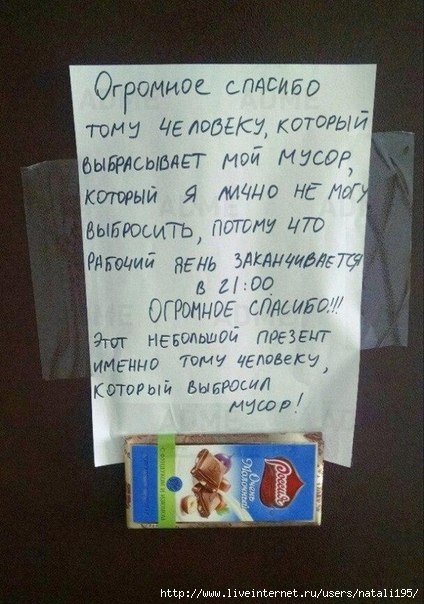 Огромное спасибо
тому человеку, который
выбрасывает мой мусор,
который я лично не могу
выбросить, потому что
рабочий день заканчивается
в 21:00
Огромное спасибо!!!
Этот небольшой презент
именно тому человеку,
который выбросил
мусор!
Россия
Очень
Молочный
http://www.liveinternet.ru/users/natali195/